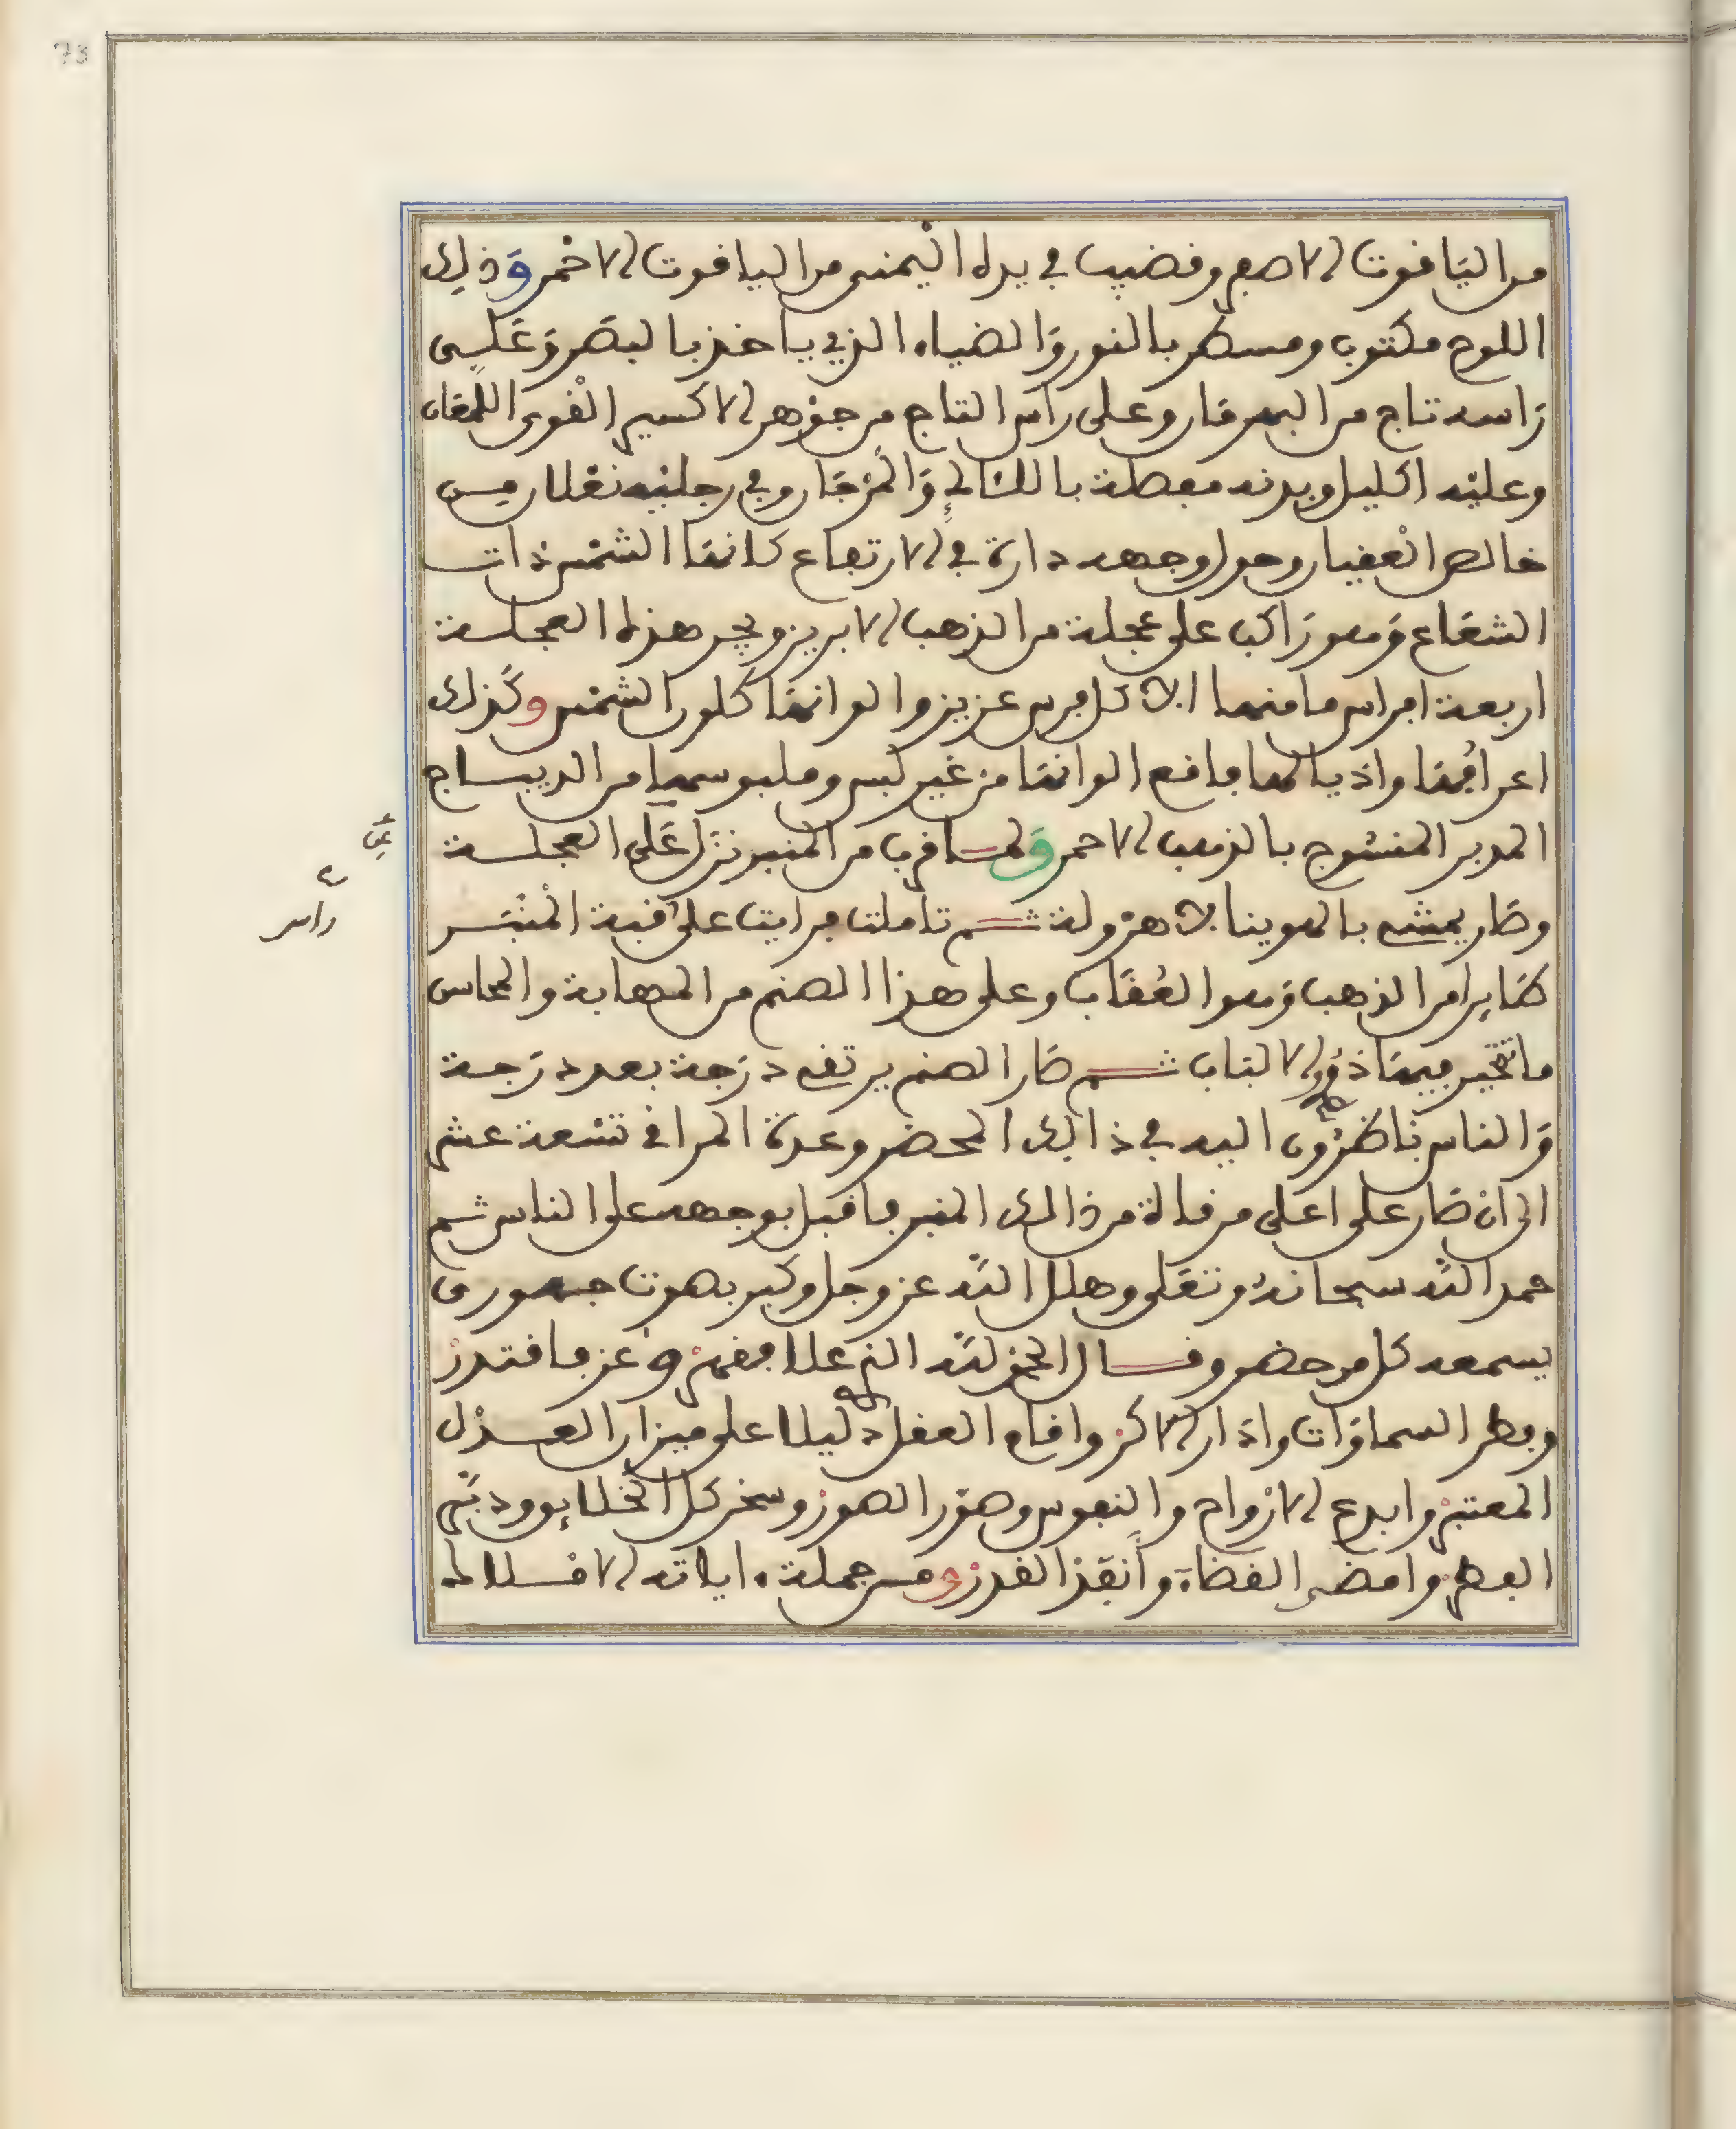 73
من الياقوت الاصفر وقضيب في يده اليمنى من الياقوت الاحمر وذلك
اللوح مكتوب ومسطر بالنور والضياء الذي ياخذ بالبصر وعلى
راسه تاج من البهرمان وعلى راس التاج من جوهر الاكسير القوى اللمعان
وعليه اكليل وبدنه مغطة بالئالئ والمرجان وفي رجليه نعلان من
خالص العقيان وحول وجهه دارة في الارتفاع كانها الشمس ذات
الشعاع وهو راكب على عجلة من الذهب الابريز ويجر هذه العجلة
اربعة افراس ما منها الا كل فرس عزيز والوانها كلون الشمس وكذلك
اعرافها واذيالها فاقع الوانها من غير لبس وملبوسها من الديباج
المدبر المنسوج بالذهب الاحمر ولما قرب من المنبر نزل على العجلة
وصار يمشى بالهوينا بلا هرولة ثم تاملت فرايت على قبة المنبر
راس
طايرا من الذهب وهو العقاب وعلى هذا الصنم من المهابة والمحاسن
ما تتحير فيها ذوى الالباب ثم صار الصنم يرتفع درجة بعد درجة
والناس ناظرون اليه في ذالك المحضر وعدة المراقي تسعة عشر
الى ان صار على اعلى مرقاة من ذالك المنبر فاقبل بوجهه على الناس ثم
حمد الله سبحانه وتعلى وهلل الله عز وجل وكبر بصوت جهوري
يسمعه كل من حضر وقال الحمد لله الذي علا فقهر وعز فاقتدر
وفطر السماوات وادار الاكر واقام العقل دليلا على ميزان العدل
المعتبر وابدع الارواح والنفوس وصور الصور وسخر كل الخلايق ودبر
الفطر وامضى القضاة وانقذ القدر ومن جملة ءاياته الافلاك